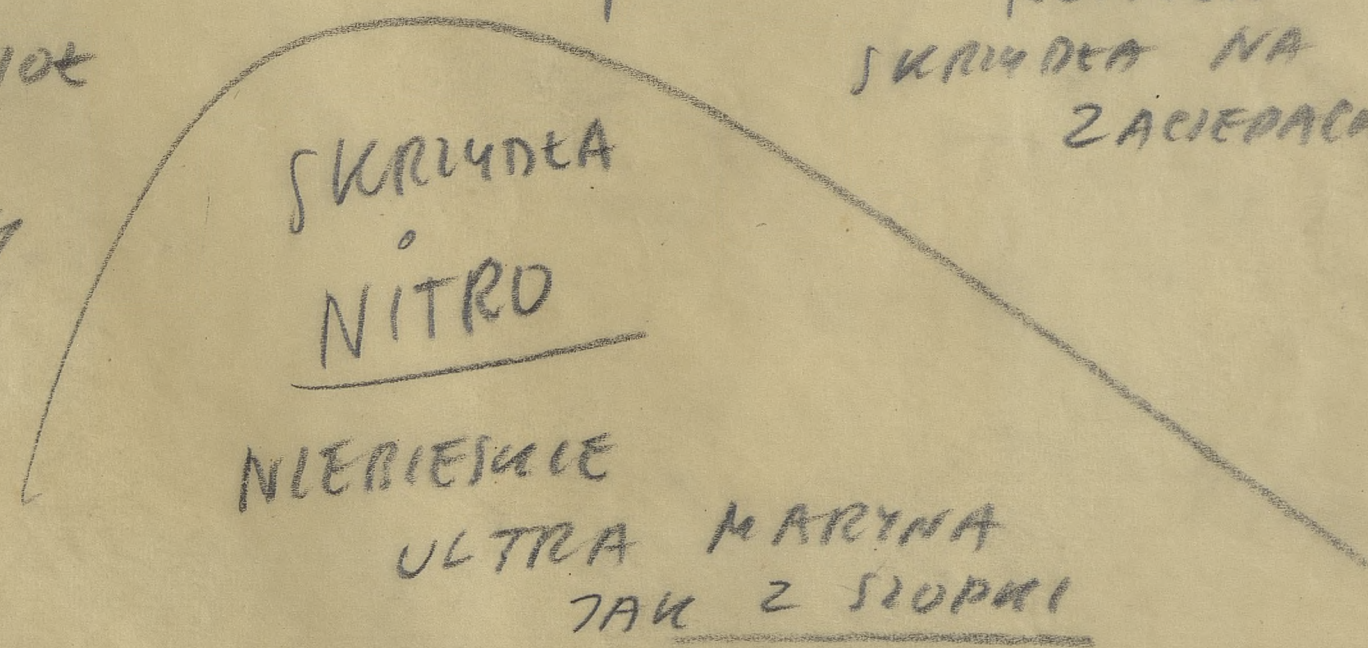 SKRZYDŁA NA
SKRZYDŁA
NITRO
NIEBIESKIE
ULTRA MARYNA
JAK Z SZOPKI